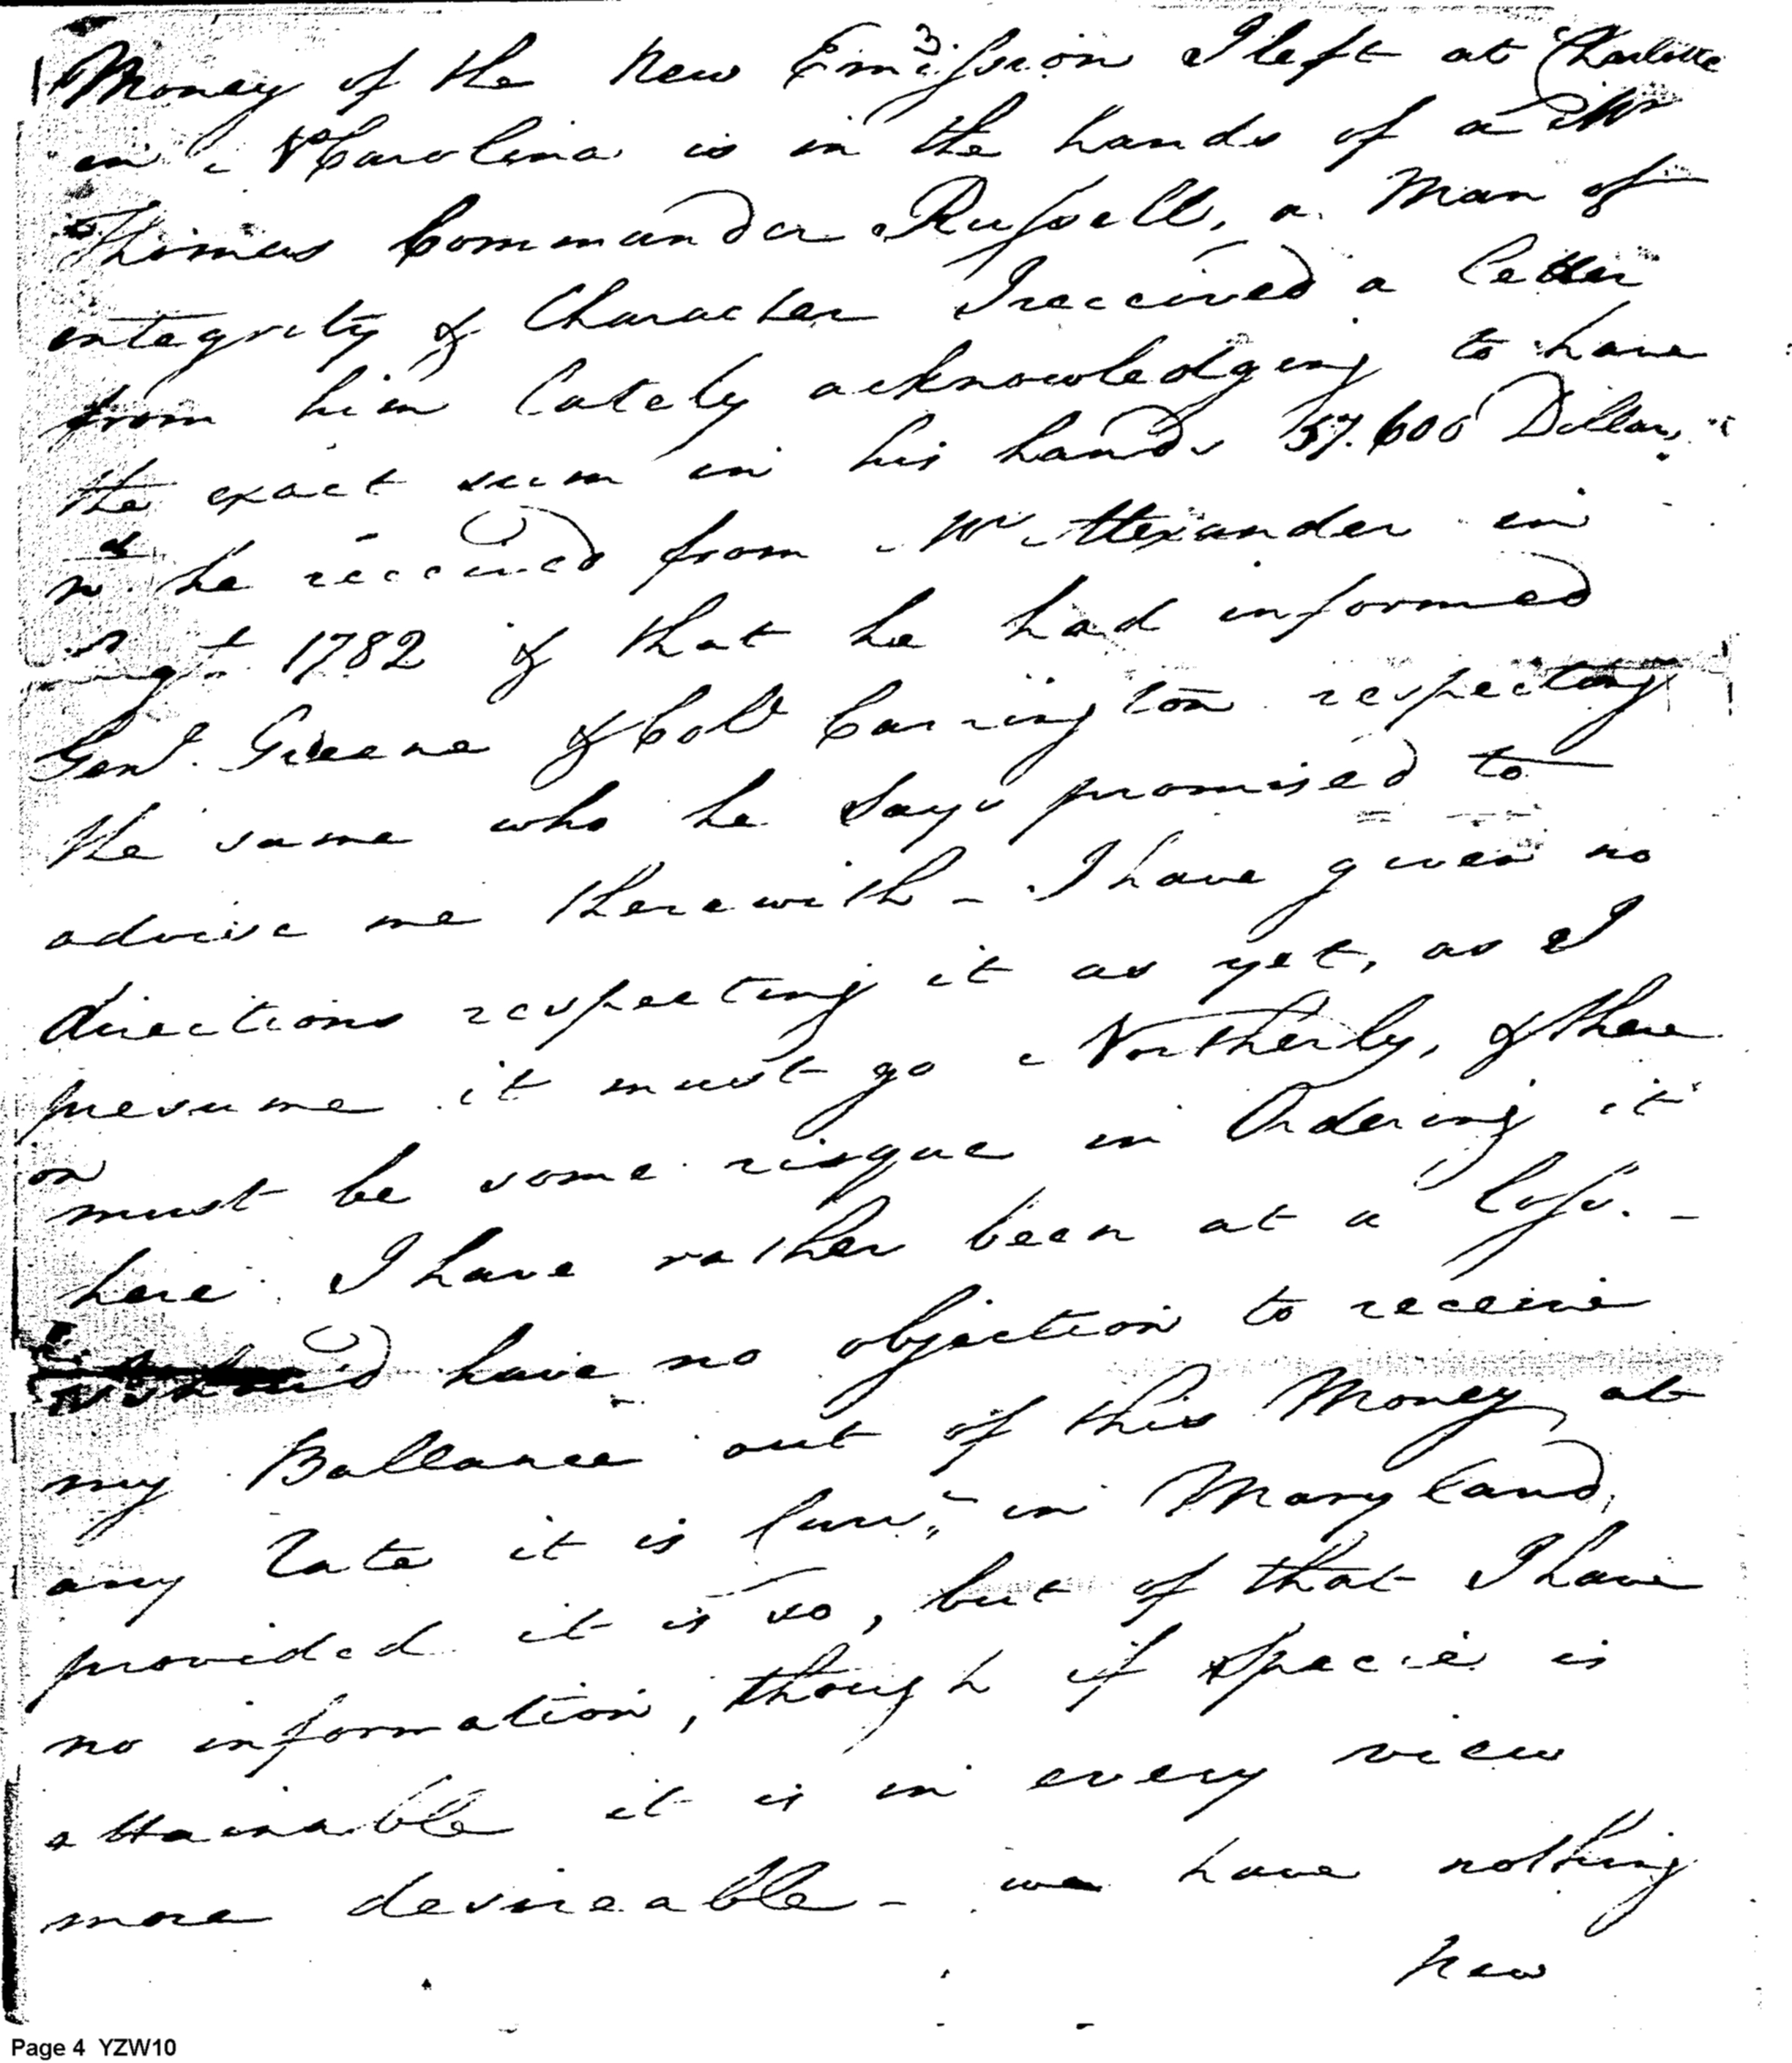 Money of the New Emission I left at Charlotte
in No Carolina is in the hands of a Mr
Thomas Commander Russell, a Man of
integrity & Character I received a letter
from him lately acknowledging to have
the exact sum in his hands 57.600 Dollars
he received from Mr Alexander in
1782 & that he had informed
Genl. Greene & Coll Carrington respecting
the same who he says promised to
advise me therewith - I have given no
directions respecting it as yet, as I
presume it must go Northerly, & there
on
must be some risque in Ordering it
here I have rather been at a loss. -
have no objection to receive
my Ballance out of this Money at
any rate it is in Maryland,
provided it is so, but of that I have
no information, though if specie is
attainable it is in every view
more desireable - we have nothing
New
Page 4 YZW10